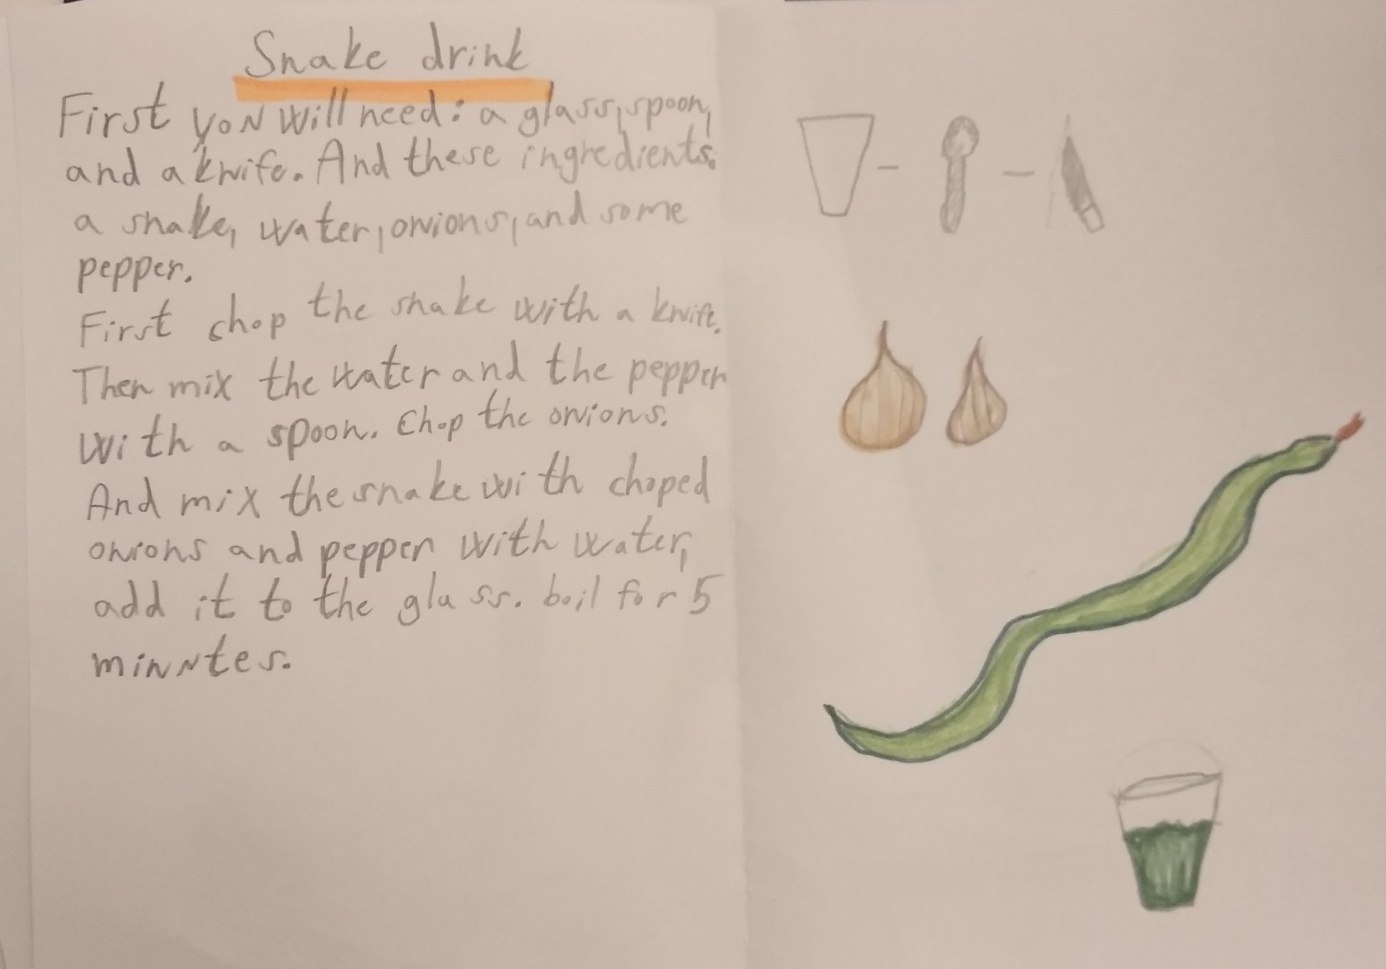 Snake drink
First you will need: a glass, spoon,
and a knife. And these ingredients:
a snake, water, onions, and some
pepper.
First chop the snake with a knife.
Then mix the water and the pepper
with a spoon. Chop the onions.
And mix the snake with choped
onions and pepper with water,
add it to the glass. boil for 5
minutes.